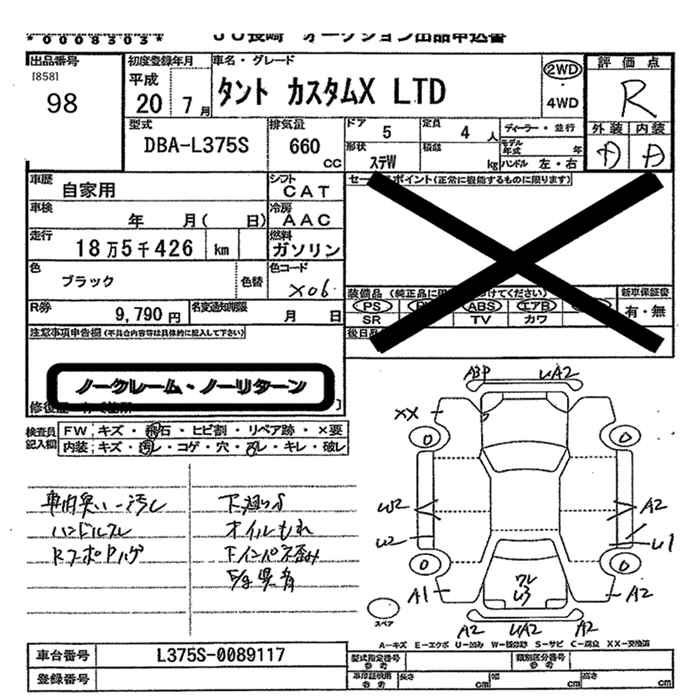 *0008503*
JU長崎 オークション出品申込書
出品番号 初度登録年月 車名・グレード 2WD ・ 4WD 評価点
[858]
98 平成 20年 7月 タント カスタムX LTD R
型式 排気量 ドア 5 定員 4人 ディーラー・並行 外装 内装
DBA-L375S 660 CC 形状 ステW 積載 kg モデル年式 年 ハンドル 左・右 A A
車歴 自家用 シフト CAT セールスポイント(正常に機能するものに限ります)
車検 年 月( 日) 冷房 AAC
走行 18万5千426 km 燃料 ガソリン
色 ブラック 色替 色コード X06
装備品 (純正品に 新車保証書
PS ABS エアB 有・無
SR TV カワ
R券 9,790円 名変通知期限 月 日
後日品
注意事項申告欄(不具合内容等は具体的に記入して下さい)
ノークレーム・ノーリターン
検査員記入欄 FW キズ・飛石・ヒビ割・リペア跡・×要
内装 キズ・汚レ・コゲ・穴・ハレ・キレ・破レ
車内臭い 汚レ
ハンドルスレ
下廻りS
オイルもれ
ABP UA2
XX
0 0
W2 A2
U2 U1
0 0
A1 A2
ワレ
U3
A2 UA2 A2
スペア
A-キズ E-エクボ U-凹み W-板金跡 S-サビ C-腐食 XX-交換済
車台番号 L375S-0089117 型式指定番号 参考 類別区分番号 参考
登録番号 車庫証明用 参考 長さ cm 幅 cm 高さ cm